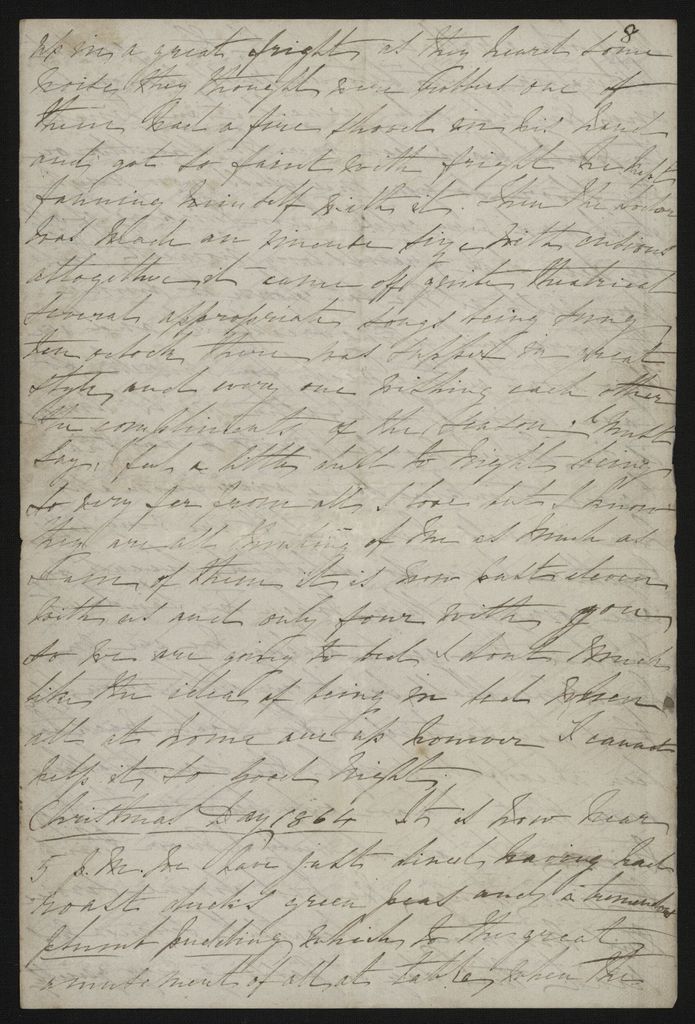 8
up in a great fright as they heard some
noise they thought were robbers one of
them had a fire shovel in his hand
and got so faint with fright he kept
fanning himself with it. Then the
was made an immense size, with
altogether it came off quite theatrical
several appropriate songs being sung
ten oclock there was supper in great
style, and every one wishing each other
the compliments of the season. I must
say, I feel a little dull to night being
so very far from all I love but I know
they are all thinking of me as much as
I am of them it is now past eleven
with us and only four with you
so we are going to bed I dont much
like the idea of being in bed when
all at home are up however I cannot
help it, so good night.
Christmas Day 1864 It is now near
5 P.M we have just dined, having had
roast ducks green peas and a tremendous
plumb pudding which to the great
amusement of all at table, when the